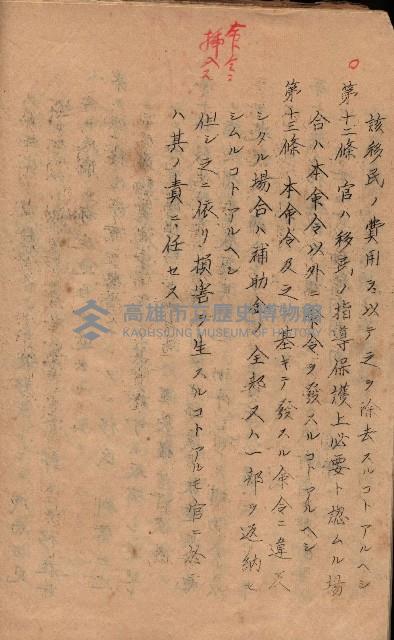 該移民ノ費用ヲ以テ之ヲ除去スルコトアルヘシ
第十二條 官ハ移民ノ指導保護上必要ト認ムル場
合ハ本命令以外ニ命令ヲ發スルコトアルヘシ
第十三條 本命令及之ニ基キテ發スル命令ニ違反
シタル場合ハ補助金ノ全部又ハ一部ヲ返納セ
シムルコトアルヘシ
但シ之ニ依リ損害ヲ生スルコトアルモ官ニ於テ
ハ其ノ責ニ任セス
命令ニ
挿入ス
高雄市立歷史博物館
KAOHSIUNG MUSEUM OF HISTORY